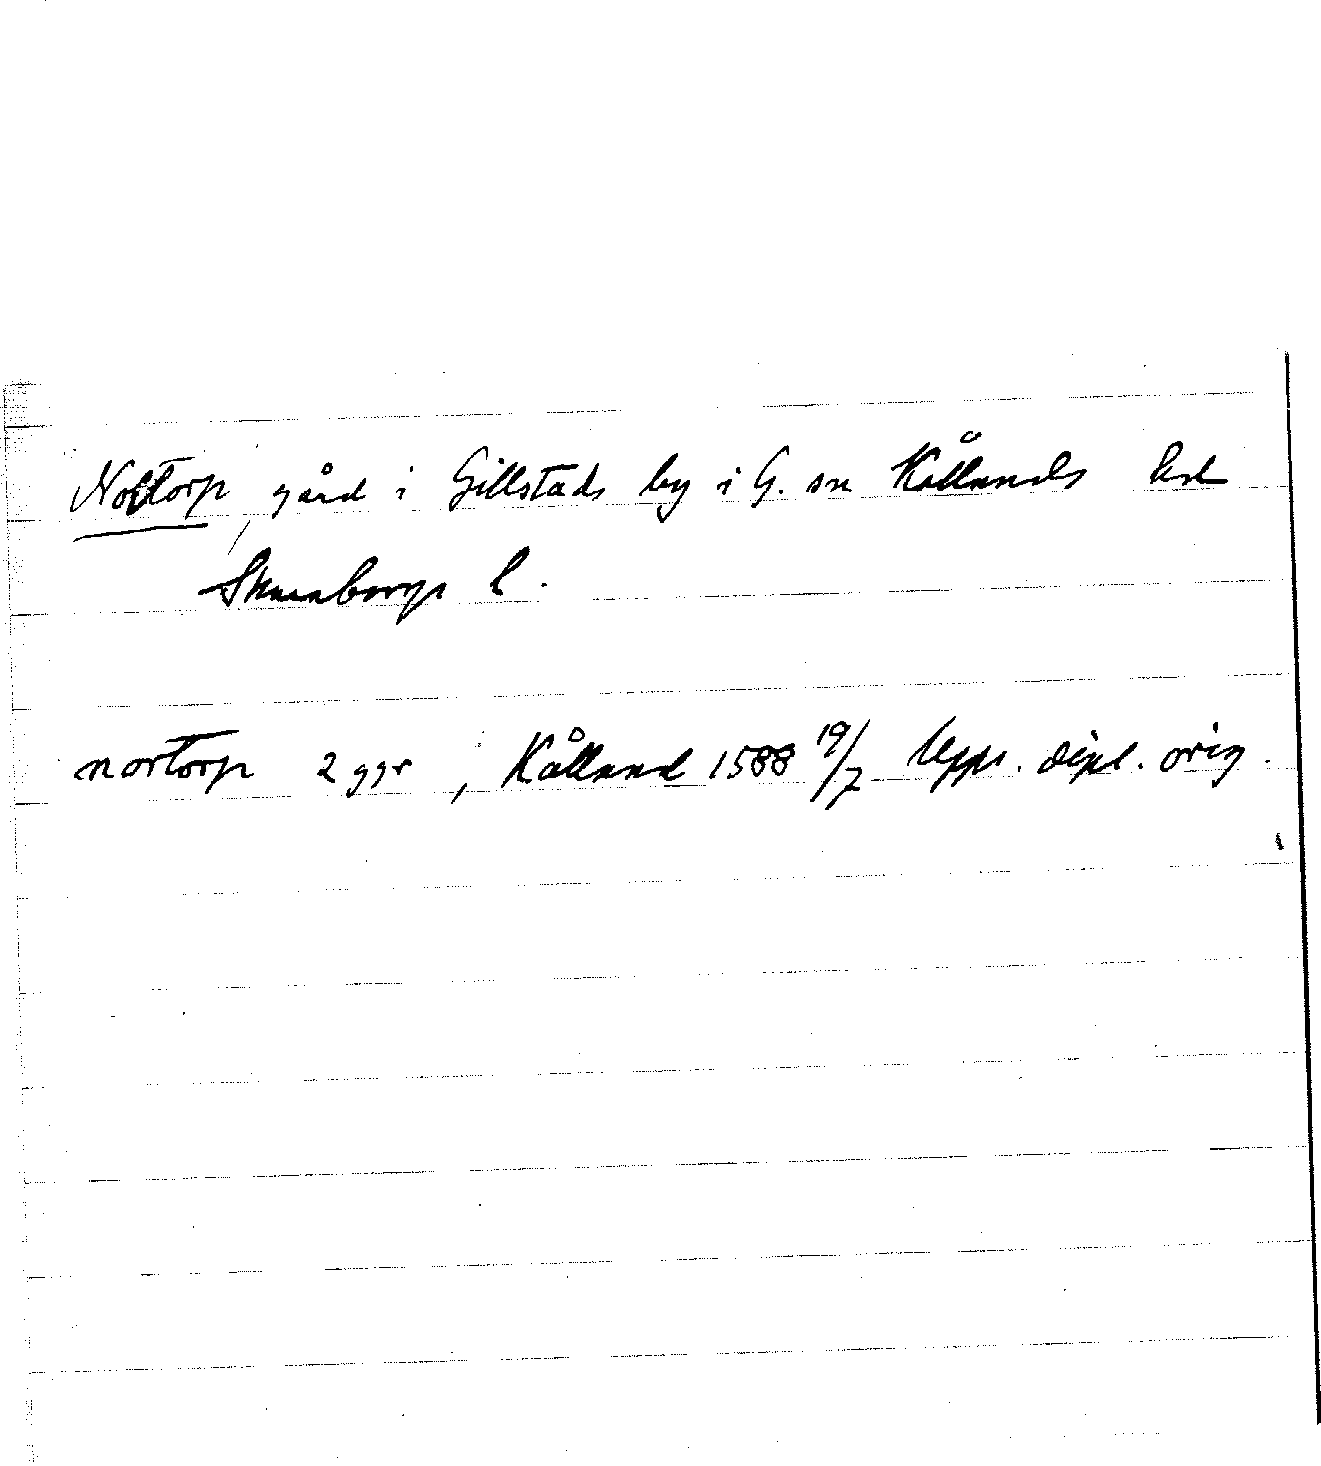 Noltorp, gård i Gillstads by i G. sn Kållands hd
Skaraborgs l.
nortorp 2 ggr, Kålland 1588 19/7 Upps. dipl. orig.